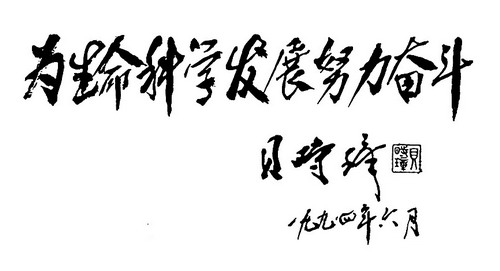 为生命科学发展努力奋斗
贝時璋
貝時璋
一九九四年六月